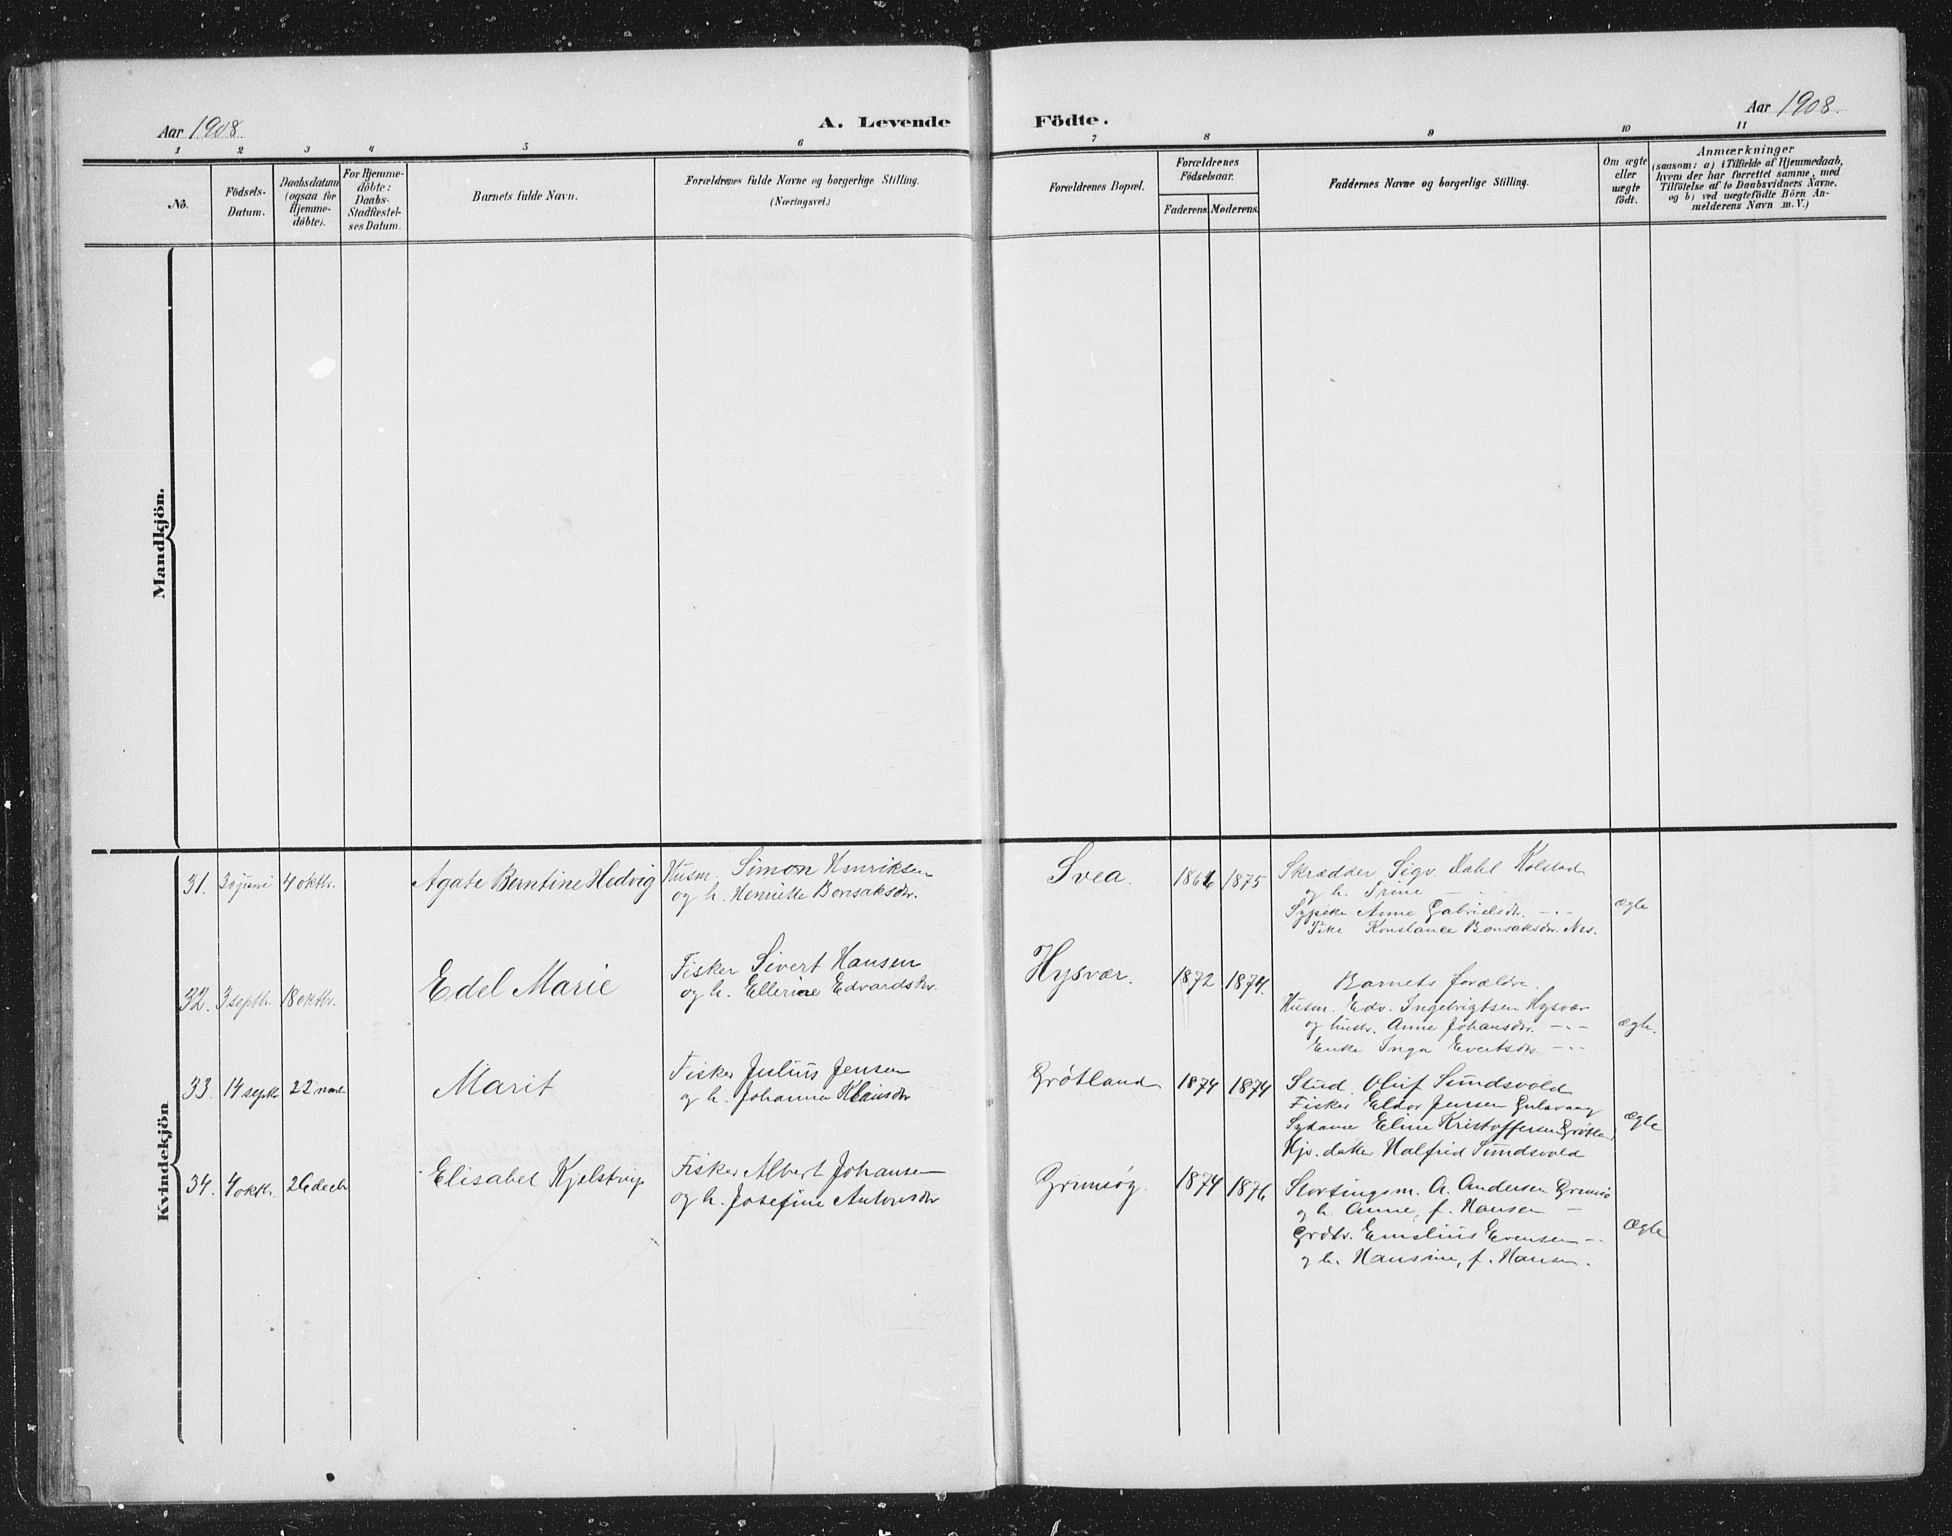 Aar 1908.
A. Levende Födte.
Aar 1908.
1 2 3 4 5 6 7 8 9 10 11
No.
Födsels-
Datum.
Daabsdatum
(ogsaa for
Hjemme-
döbte).
For Hjemme-
döbte:
Daabs-
Stadfæstel-
ses Datum.
Barnets fulde Navn.
Forældrenes fulde Navne og borgerlige Stilling.
(Næringsvei.)
Forældrenes Bopæl.
Forældrenes
Födselsaar.
Faderens. Moderens.
Faddernes Navne og borgerlige Stilling.
Om ægte
eller
uægte
födt.
Anmærkninger
(saasom: a) i Tilfælde af Hjemmedaab,
hvem der har forrettet samme, med
Tilföielse af to Daabsvidners Navne.
og b) ved uægtefödte Börn An-
melderens Navn m. V.)
Mandkjön.
Kvindekjön
31. 30 juni 4 oktbr. Agate Berntine Hedvig
Husm. Simon Henriksen
og h. Henriette Bonsaksdtr.
Svea. 1875
Skrædder Sigv. Dahl Kolstad
og h. Trine — - -
Sypike Anne Gabrielsdtr. - - -
Pike Konstance Bonsaksdtr. Nes.
ægte
32. 3 septbr. 18 oktbr. Edel Marie
Fisker Sivert Hansen
og h. Ellerine Edvardsdtr.
Hysvær. 1872 1874.
Barnets forældre.
Husm. Edv. Ingebrigtsen Hysvær
og hustr. Anne Johansdtr. - - -
Enke Inga Evertsdtr. - - -
ægte.
33. 14 septbr 22 novbr Marit
Fisker Julius Jensen
og h. Johanna Klausdtr
Grötland 1874 1874
Stud. Oluf Sundsvold
Fisker Eldor Jensen
Sydame Eline Kristoffersen Grötland
Hjv. datter Halfrid Sundsvold
ægte
34. 4 oktbr. 26 decbr Elisabet Kjelstrup
Fisker Albert Johansen
og h. Josefine Antonsdtr
Grimsøy. 1874 1876
Stortingsm. A. Andersen Grimsø
og h. Anne, f. Hansen —
Grdbr. Emelius Evensen - -
og h. Hansine, f. Hansen.
Ægte